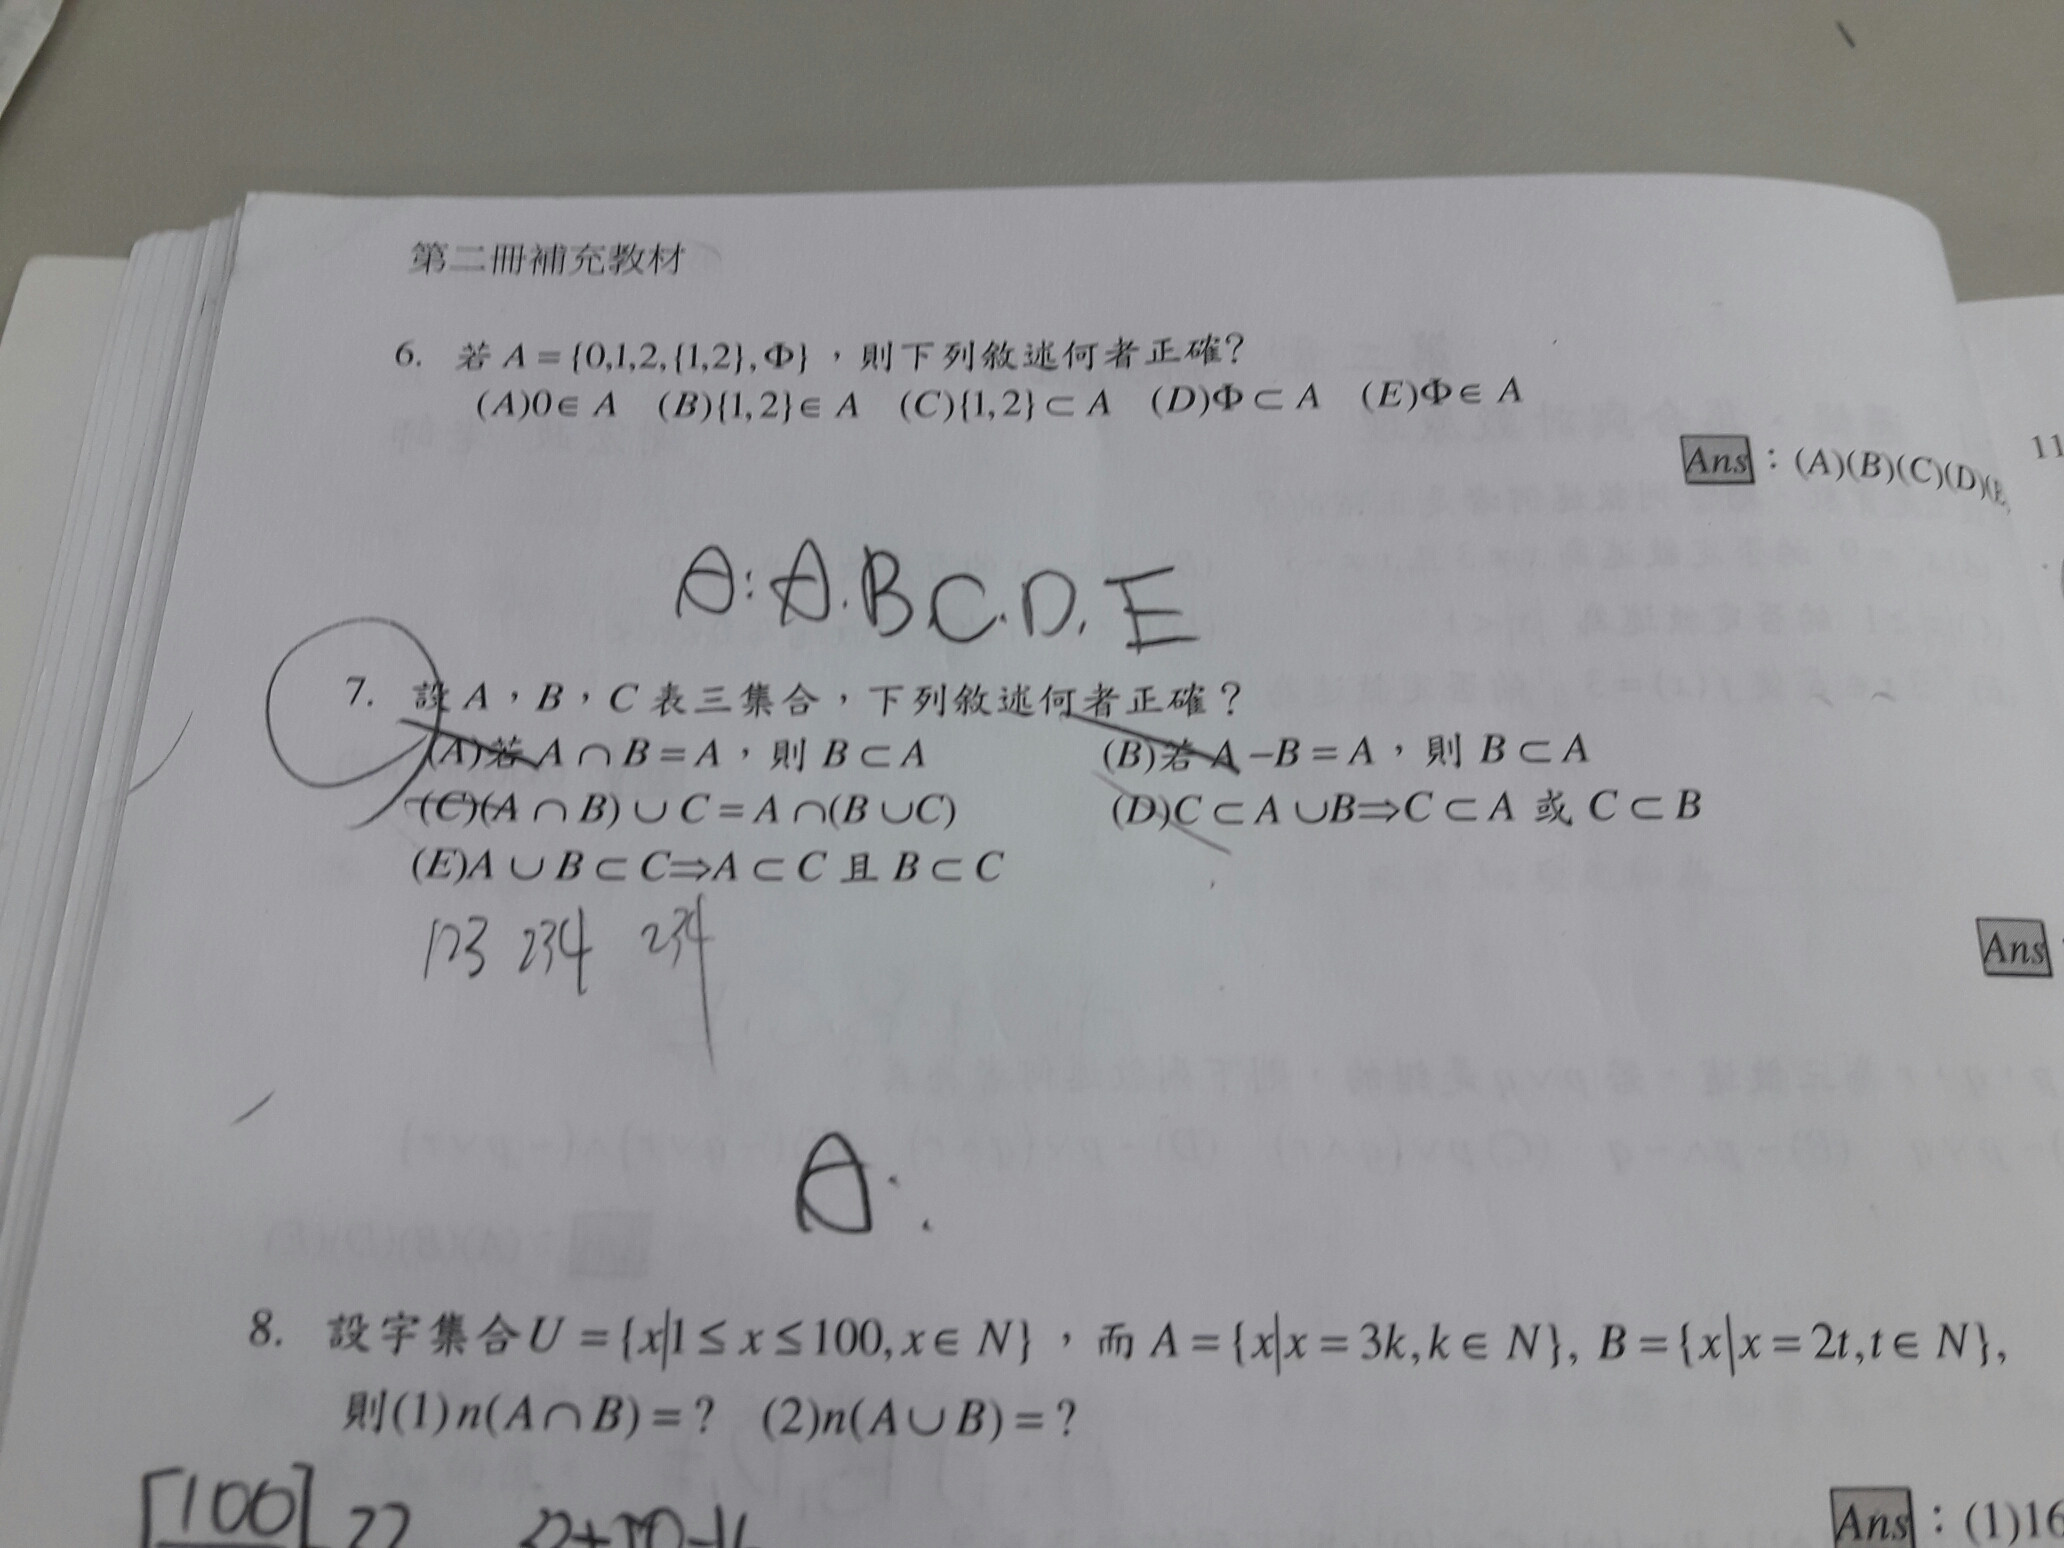 第二冊補充教材
6. 若 A = {0,1,2,{1,2},Φ}，則下列敘述何者正確?
(A)0∈ A (B){1,2}∈ A (C){1,2}⊂ A (D)Φ⊂ A (E)Φ∈ A
Ans：(A)(B)(C)(D)(E
11
A: A.B C.D. E
7. 設 A，B，C 表三集合，下列敘述何者正確？
(A)若 A ∩ B = A，則 B ⊂ A (B)若 A −B = A，則 B ⊂ A
(C)(A ∩ B) ∪ C = A ∩(B ∪C) (D)C ⊂ A ∪B⇒C ⊂ A 或 C ⊂ B
(E)A ∪ B ⊂ C⇒A ⊂ C 且 B ⊂ C
Ans
123 234 234
A:
8. 設宇集合U = {x|1 ≤ x ≤ 100, x∈ N}，而 A = {x|x = 3k, k ∈ N}, B = {x|x = 2t, t ∈ N},
則(1)n(A∩B) = ? (2)n(A∪B) = ?
Ans：(1)16
[100]